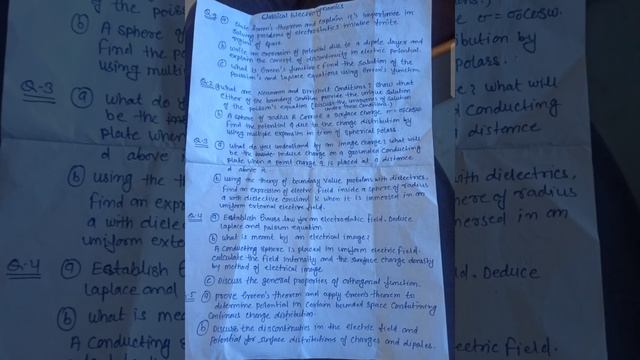 Classical Electrodynamics
Q.1 (a) State Green's theorem and explain it's importance in
solving problems of electrostatics involve finite
region of space
(b) Write an expression of potential due to a dipole layer and
explain the concept of discontinuity in electric potential.
(c) What is Green's function? Find the solution of the
Poission's and laplace equations using Green's function
Q.2 (a) What are Neumann and Dirichlet Conditions? Show that
either of the boundary condition provide the unique solution
of the poission's equation (Discuss the uniqueness of solution
under these conditions)
(b) A sphere of radius R carries a surface charge σ = σ₀cosω.
Find the potential φ due to the charge distribution by
using multiple expansion in term of spherical polars.
Q-3 (a) What do you understand by an image charge? What will
be the induce charge on a grounded conducting
plate when a point charge q is placed at a distance
d above it
(b) using the theory of boundary value problems with dielectrics,
Find an expression of electric field inside a sphere of radius
a with dielectric constant K when it is immersed in an
uniform external electric field.
Q-4 (a) Establish Gauss law for an electrostatic field. Deduce
laplace and poission equation
(b) What is meant by an electrical image?
A conducting sphere is placed in uniform electric field.
calculate the field intensity and the surface charge density
by method of electrical image
(c) Discuss the general properties of orthogonal function.
5 (a) prove Green's theorem and apply Green's theorem to
ditermine potential in certain bounded space containing
continuous charge distribution.
(b) Discuss the discontinuties in the electric field and
potential for surface distributions of charges and dipoles.